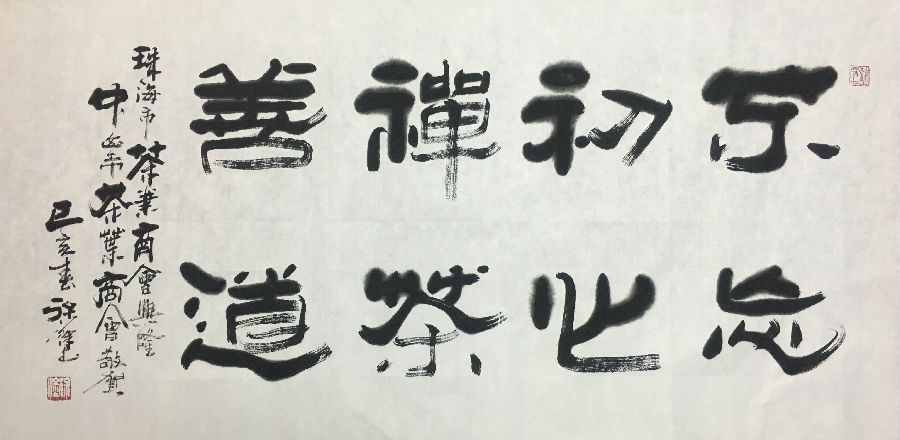 不忘
初心
禪茶
善道
珠海市茶業商會興隆
中山市茶葉商會敬賀
己亥春